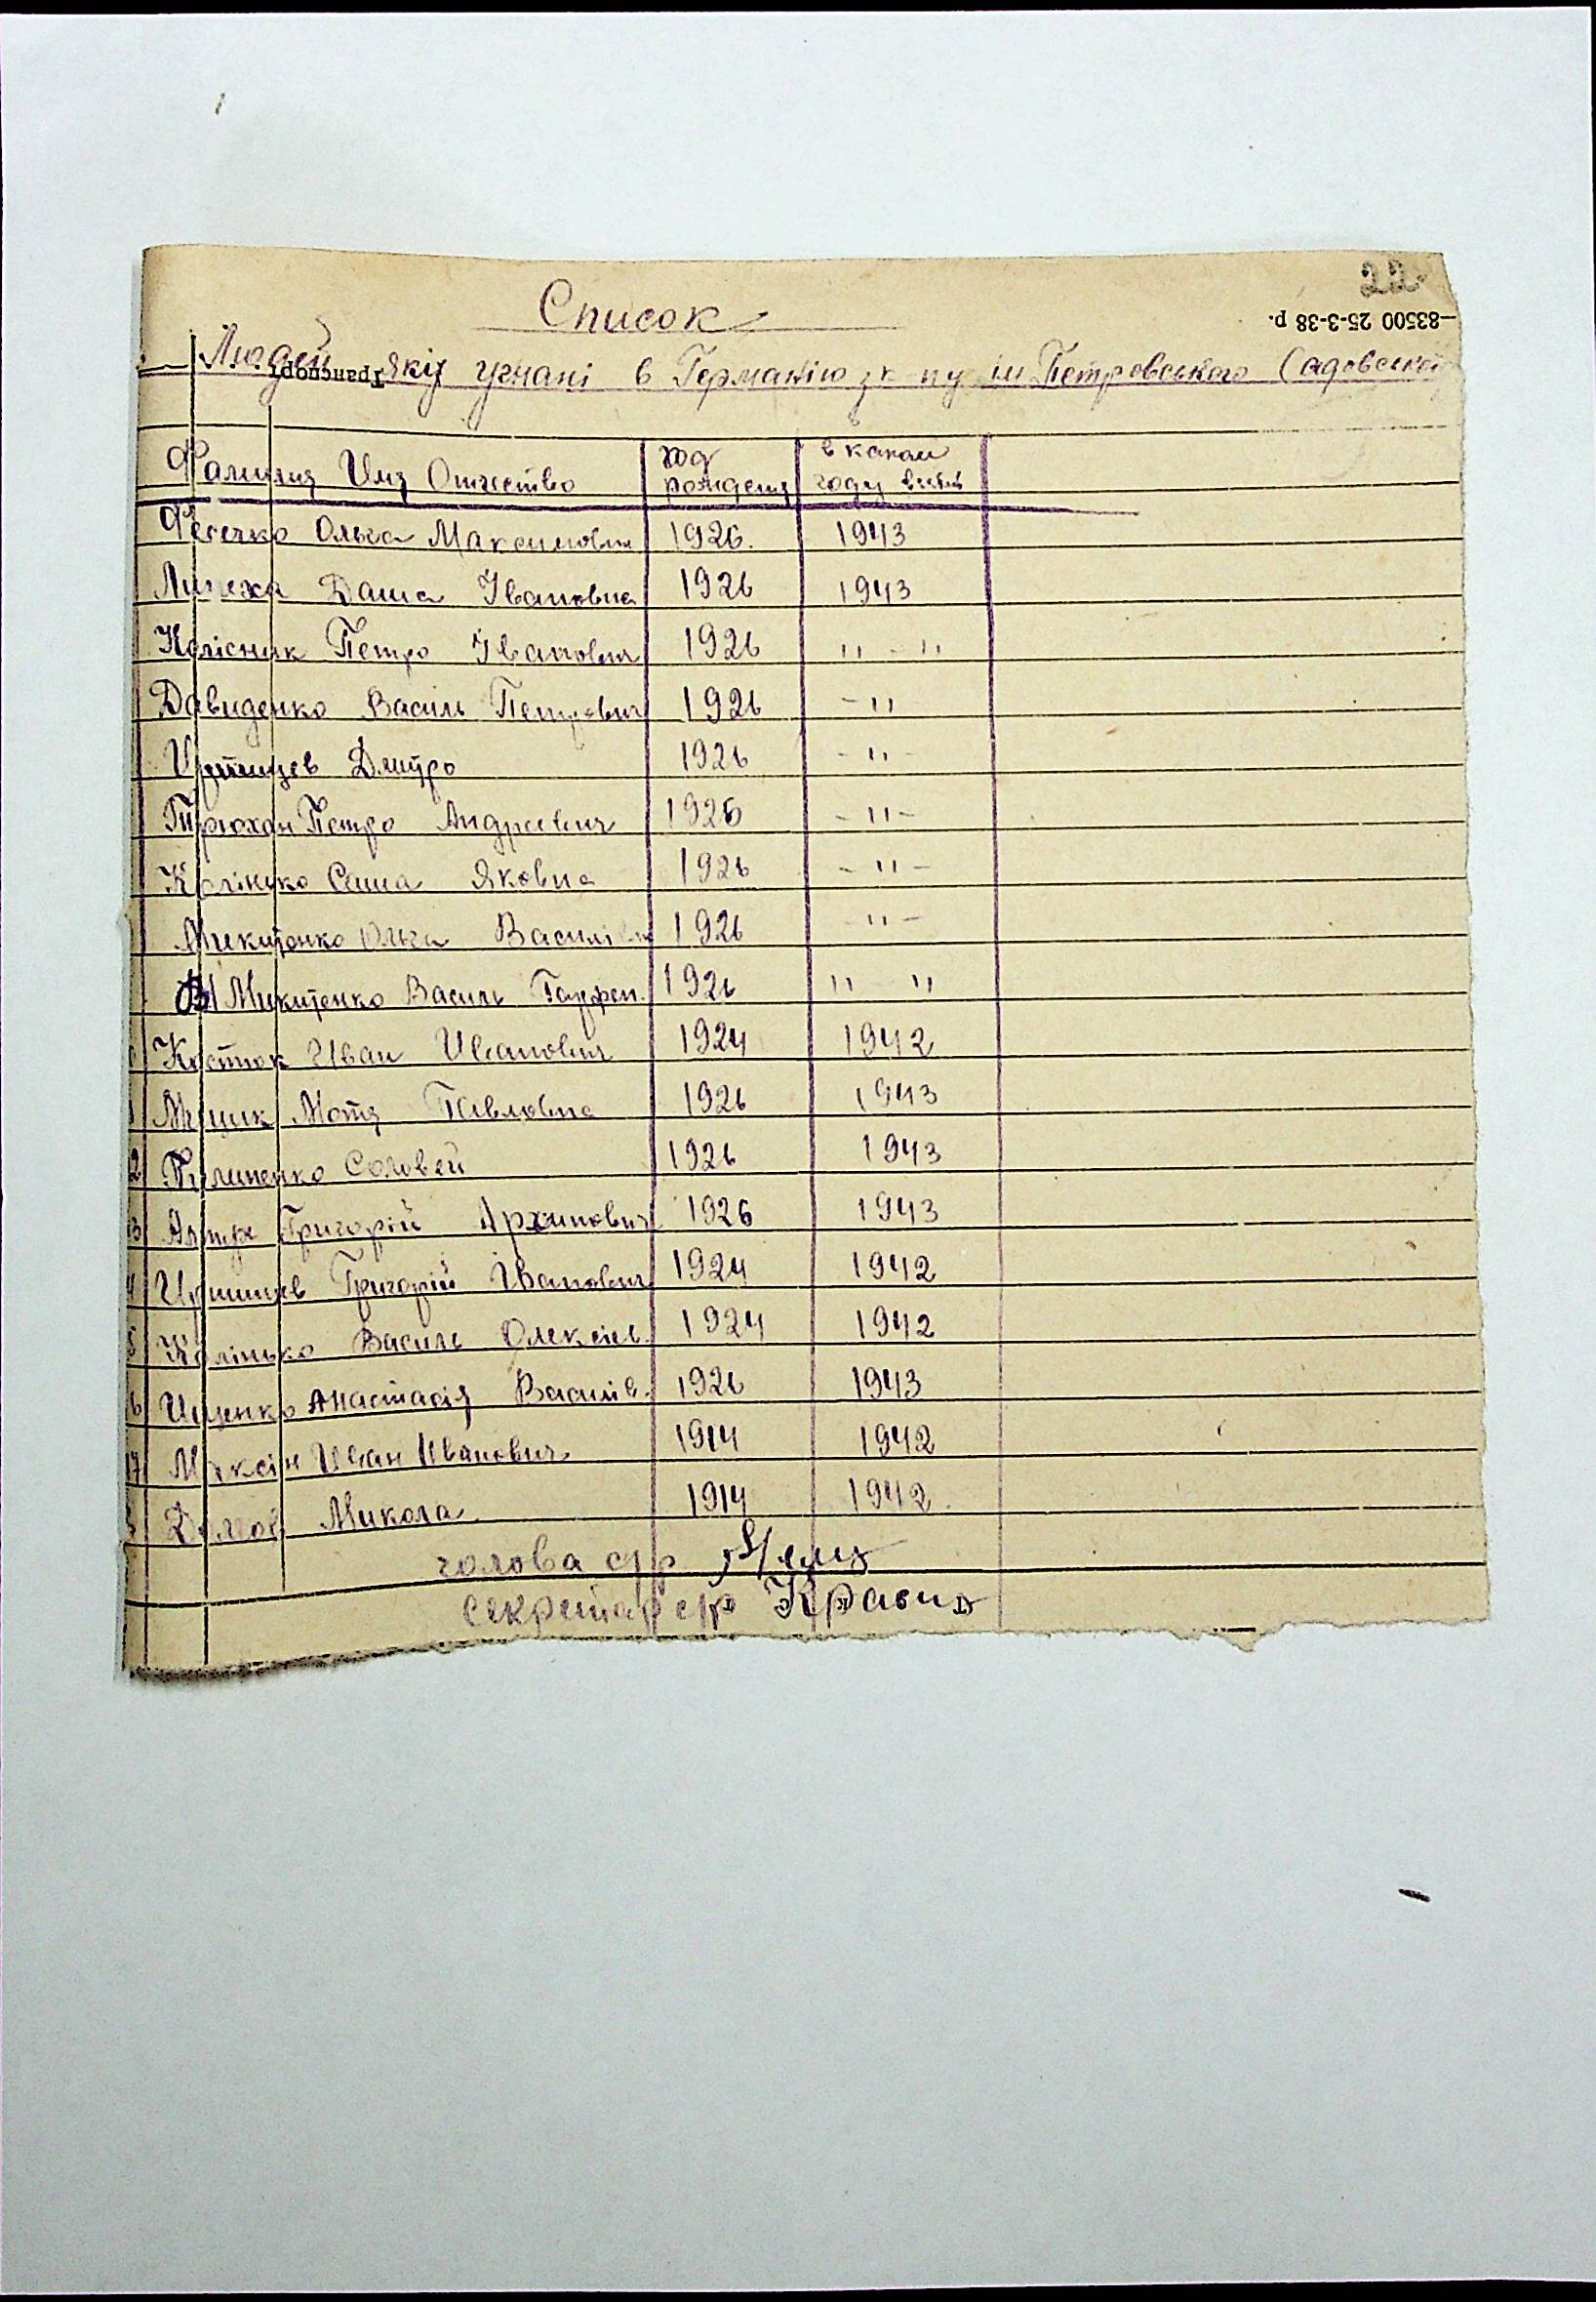 22
—83500 25-3-38 р.
Список
Людей які угнані в Германію з к-пу ім Петровського Садовської
Транспорт
Фамилия Имя Отчество год рождения в каком году
Фесечко Ольга Максимовна 1926. 1943
Даша Івановна 1926 1943
Колісник Петро Іванович 1926 " - "
Давиденко Василь Петрович 1926 - "
Дмитро 1926 - " -
Тирюхан Петро Андреевич 1926 - " -
Калінико Саша Яковна 1926 - " -
Микитенко Ольга Василівна 1926 - " -
Микитенко Василь 1926 " "
Костюк Иван Иванович 1924 1942
Мотя Павловна 1926 1943
2 Пилипенко Соловей 1926 1943
3 Григорій Архипович 1926 1943
4 Григорій Іванович 1924 1942
5 Калінько Василь Олексієв. 1924 1942
6 Ищенко Анастасія Василів. 1926 1943
17 Максін Иван Иванович 1914 1942
Микола 1914 1942.
голова с/р
секретар с/р